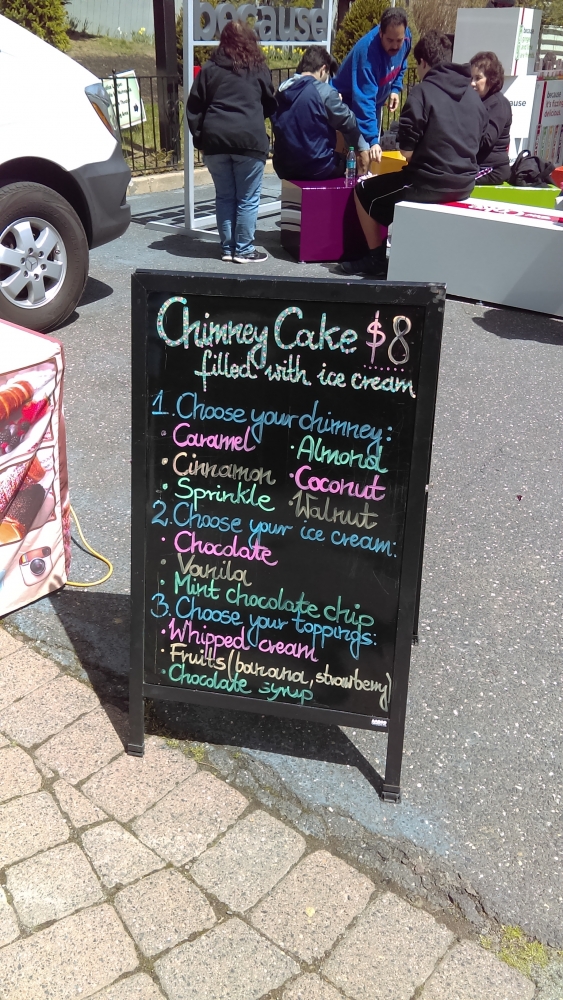 because
because
it's frozen
delicious
because
Chimney Cake $8
filled with ice cream
1. Choose your chimney:
• Caramel • Almond
• Cinnamon • Coconut
• Sprinkle • Walnut
2. Choose your ice cream:
• Chocolate
• Vanila
• Mint chocolate chip
3. Choose your toppings:
• Whipped cream
• Fruits (banana, strawberry)
• Chocolate syrup